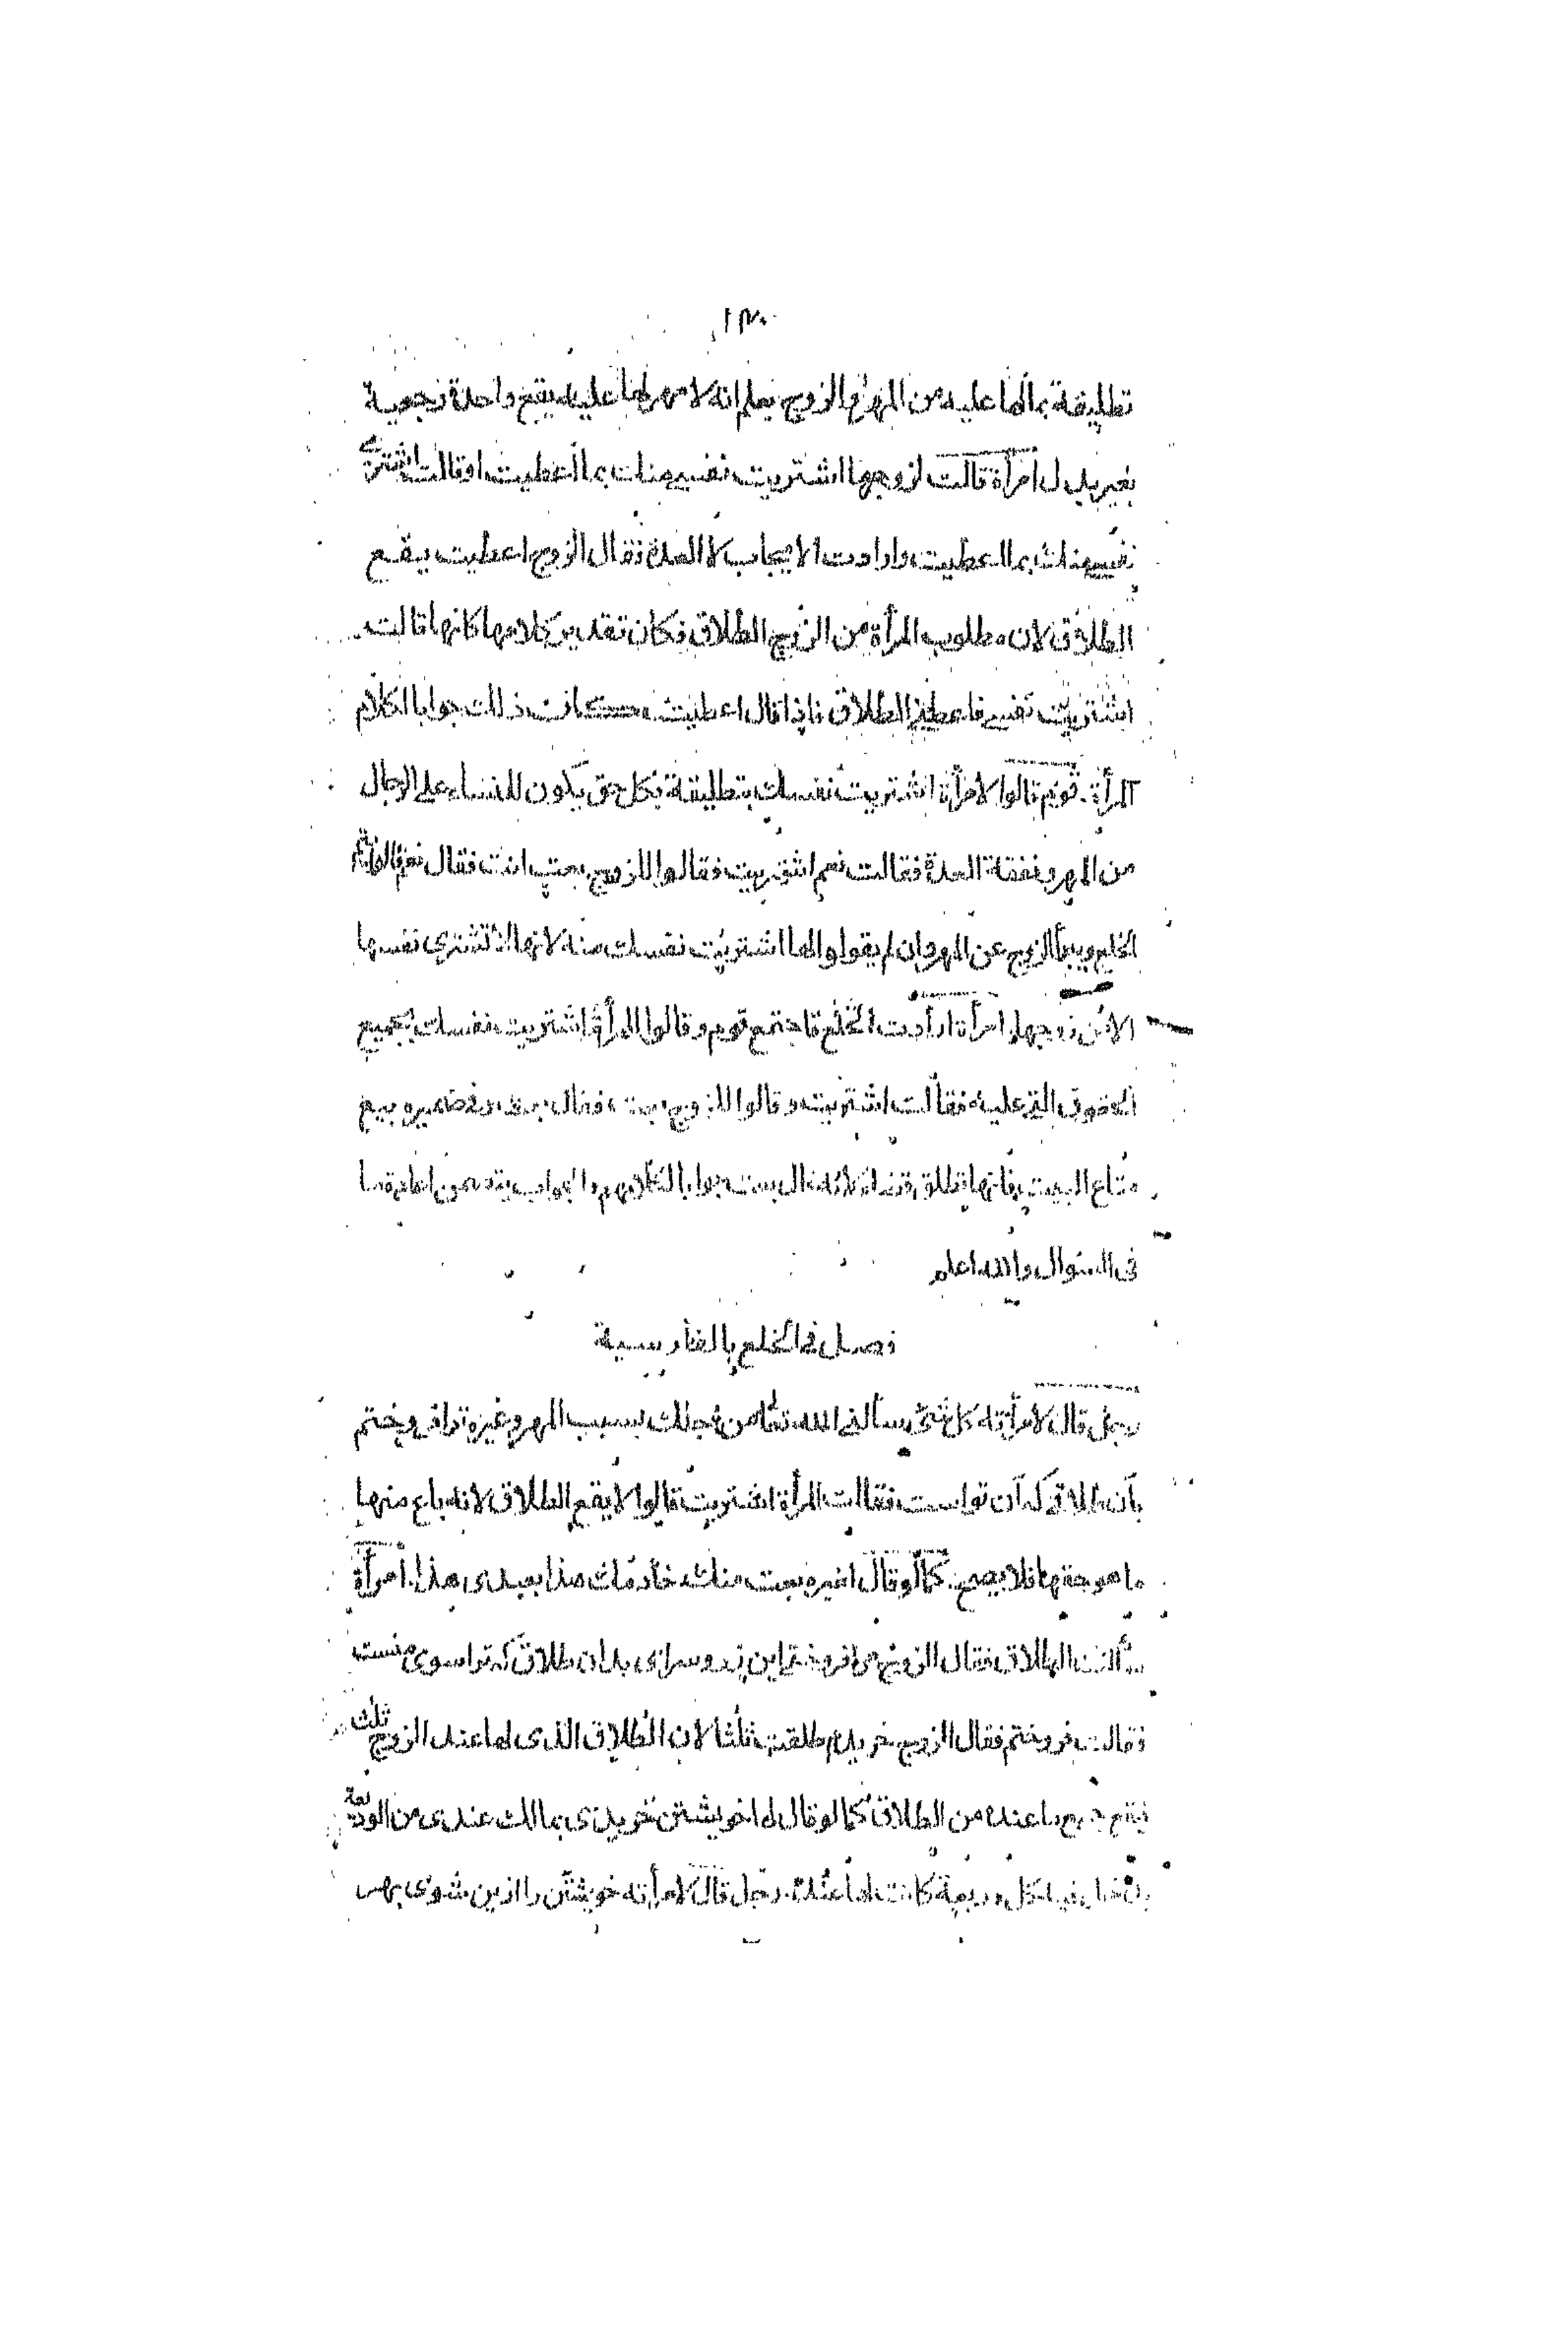 ١٣٠
تطليقة بمالها عليه من المهر والزوج يعلم انه لا مهر لها عليه يقع واحدة رجعية
بغير بدل امرأة قالت لزوجها اشتريت نفسي منك بما اعطيت او قالت اشتري
نفسي منك بما اعطيت وارادت الايجاب لا العدة فقال الزوج اعطيت يقع
الطلاق لان مطلوب المرأة من الزوج الطلاق فكان تقدير كلامها كانها قالت
اشتريت نفسي فاعطني الطلاق فاذا قال اعطيت كان ذلك جوابا لكلام
المرأة قوم قالوا لامرأة اشتريت نفسك بتطليقة بكل حق يكون للنساء على الرجال
من المهر ونفقة العدة فقالت نعم اشتريت فقالوا للزوج بعت انت فقال نعم
الخلع ويبرأ الزوج عن المهر وان لم يقولوا لها اشتريت نفسك منه لانها لا تشتري نفسها
الا من زوجها امرأة ارادت الخلع فاجتمع قوم وقالوا للمرأة اشتريت نفسك بجميع
الحقوق التي عليه فقالت اشتريت وقالوا للزوج بعت فقال بعت وفي ضميره بيع
متاع البيت فانها تطلق قضاء لانه قال بعت جوابا لكلامهم والجواب يتضمن اعادة ما
فى السوال والله اعلم
فصل فى الخلع بالفارسية
رجل قال لامرأته كل شئ يسألني الله تعالى من اجلك بسبب المهر وغيره ترا فروختم
بآن طلاق كه آن تواست فقالت المرأة اشتريت قالوا لا يقع الطلاق لانه باع منها
ما هو حقها فلا يصح كما لو قال لغيره بعت منك خادمك هذا بعبدى هذا امرأة
سألت الطلاق فقال الزوج مرا فروختى اين بدان طلاق كه ترا سوى منست
فقالت فروختم فقال الزوج خريدم طلقت ثلثا لان الطلاق الذى لها عند الزوج ثلث
فيقع جميع ما عنده من الطلاق كما لو قال لها خويشتن خريدى بما لك عندى من الوديعة
يدخل فيه كل وديعة كانت لها عنده رجل قال لامرأته خويشتن را ازين شوى بهر